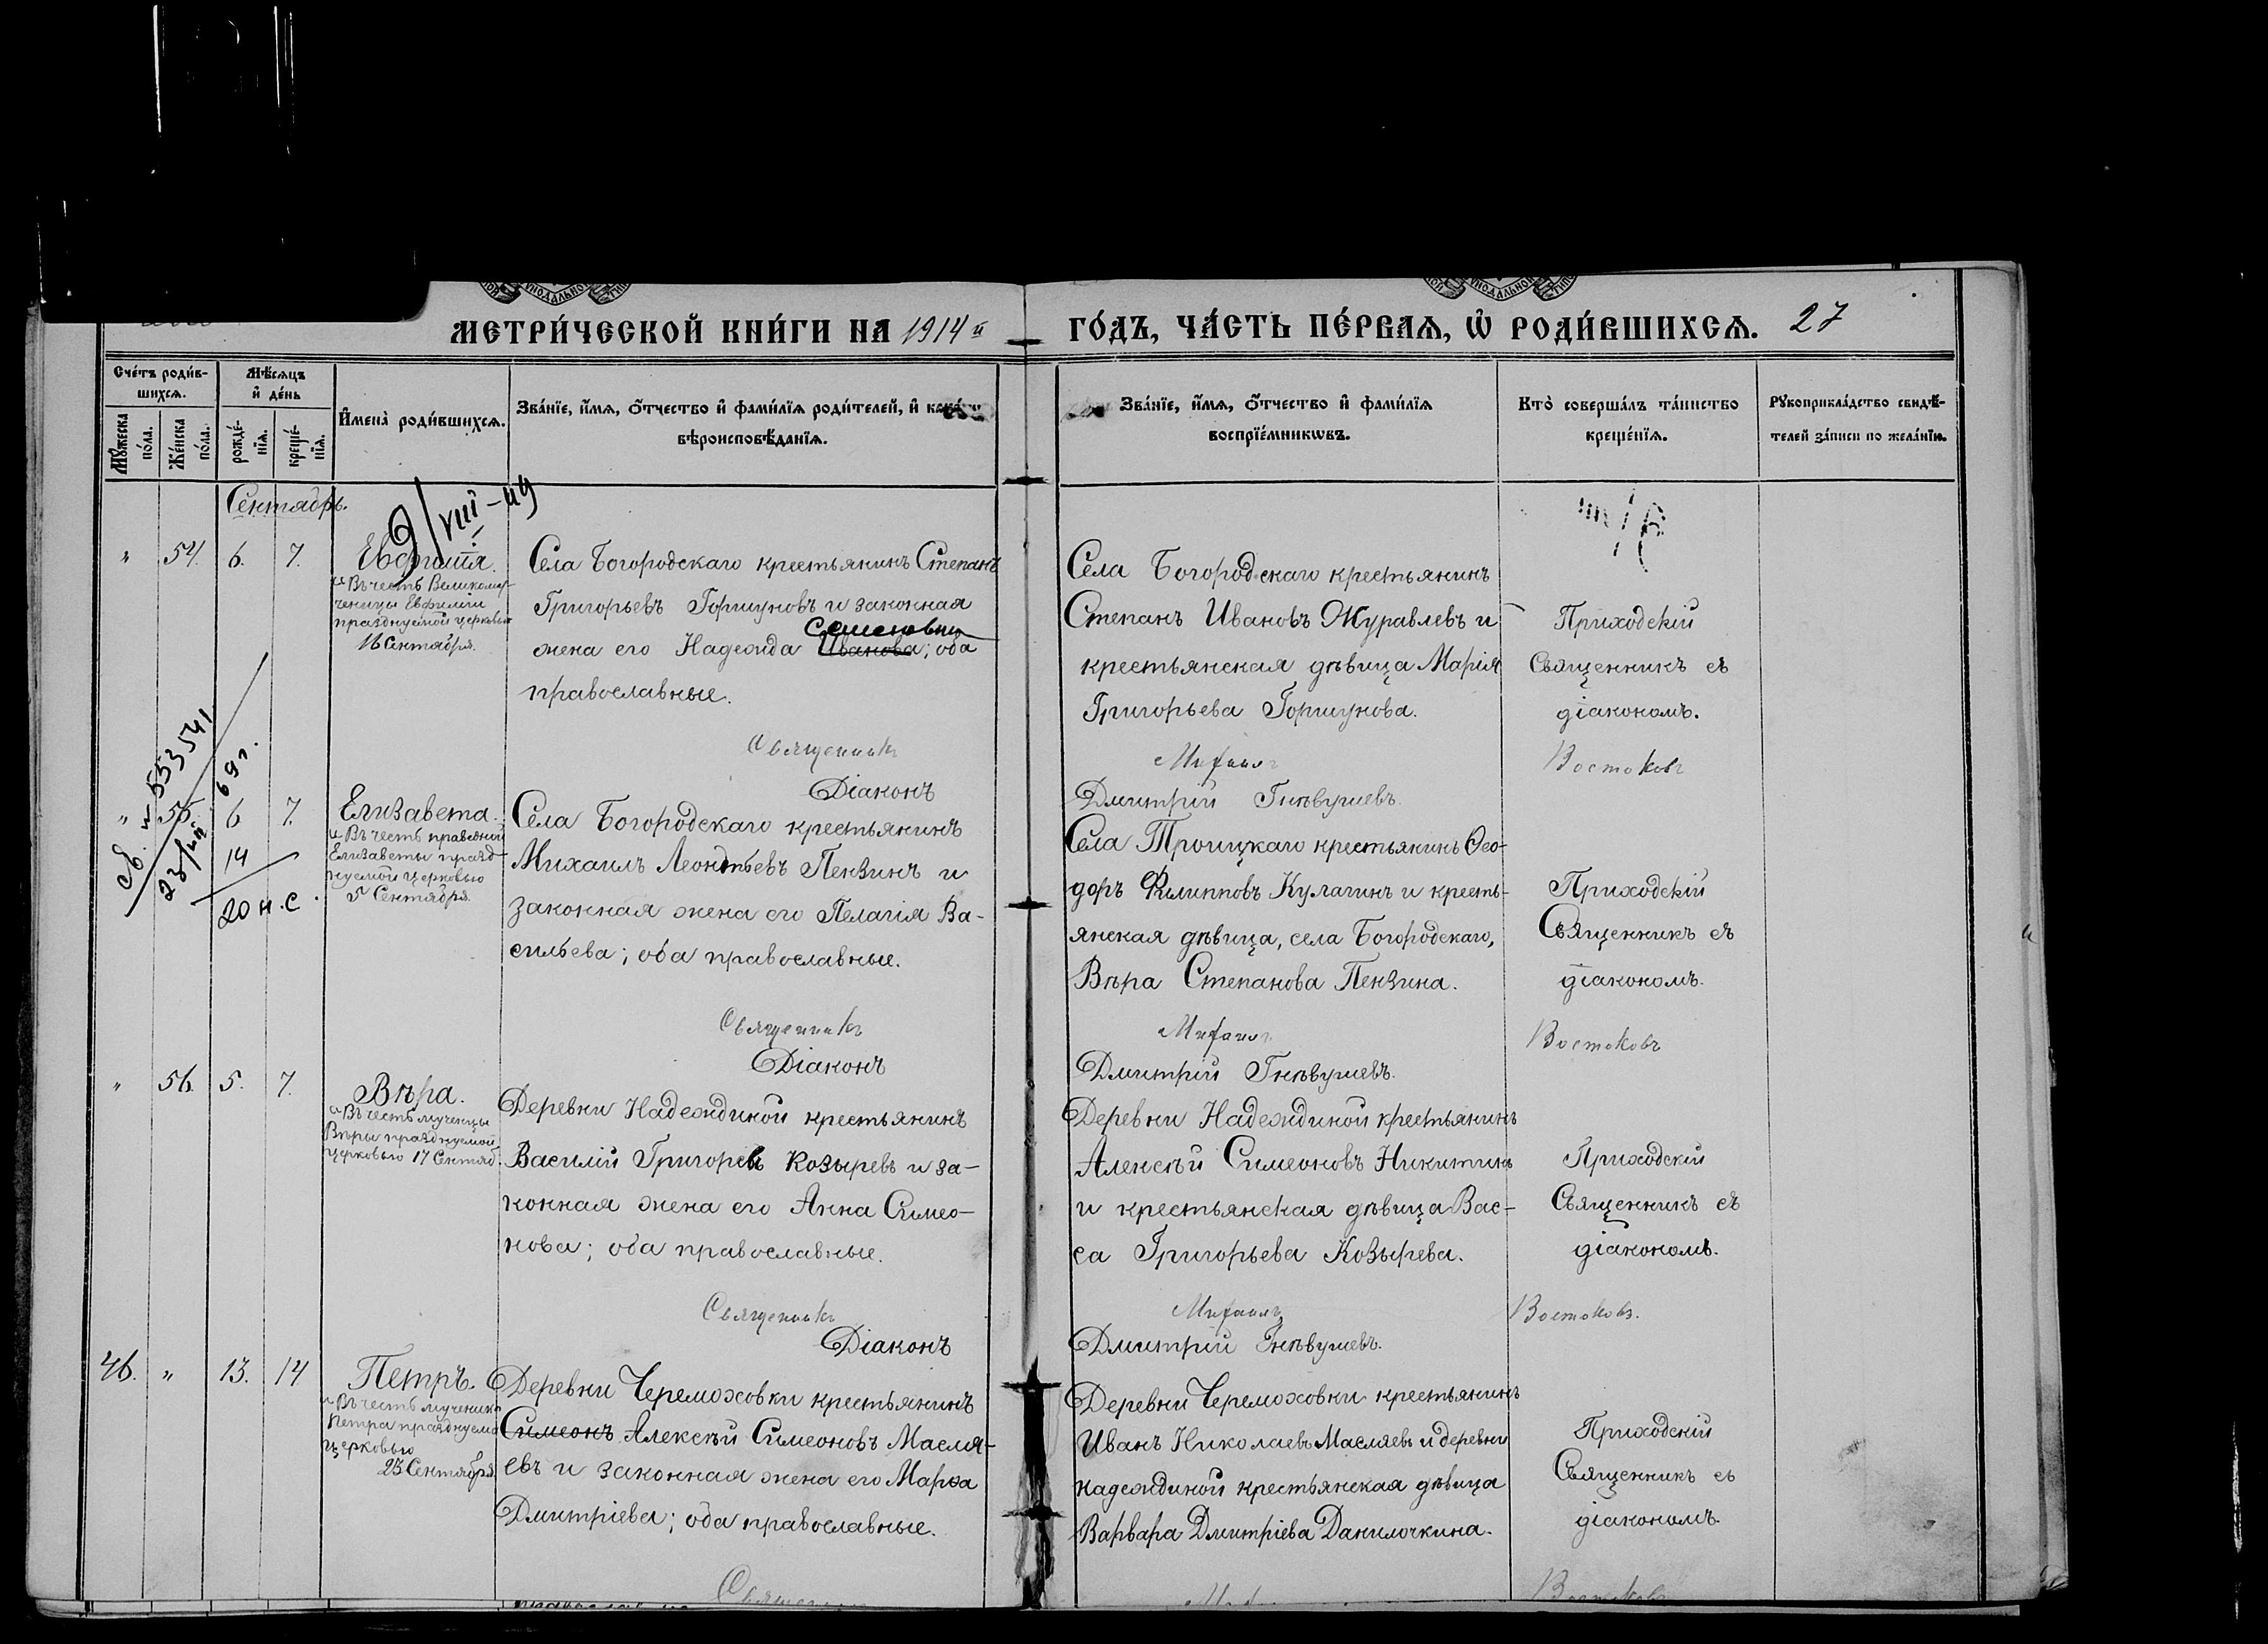 МЕТРИ́ЧЕСКОЙ КНИ́ГИ НА 1914 й
ГО́ДЪ, ЧА́СТЬ ПЕ́РВАѦ, Ѡ РОДИ́ВШИХСѦ. 27
Сче́тъ роди́в-
шихсѧ.
Мꙋжеска
по́ла.
Же́нска
по́ла.
Мѣ́сѧцъ
и҆ де́нь
рожде́-
нїѧ.
креще́-
нїѧ.
И҆мена̀ роди́вшихсѧ.
Зва́нїе, и҆́мѧ, ѻ҆́тчество и҆ фами́лїѧ роди́телей, и҆
вѣроисповѣ́данїѧ.
Зва́нїе, и҆́мѧ, ѻ҆́тчество и҆ фами́лїѧ
воспрїе́мникѡвъ.
Кто̀ соверша́лъ та́инство
креще́нїѧ.
Рꙋкоприкла́дство свидѣ́-
телей за́писи по жела́нїю.
Сентябрь.
9/VIII-49
" 54. 6. 7. Евфимія.
и Въ честь Великому-
ченицы Евфиміи
празднуемой церковью
16 Сентября.
Села Богородскаго крестьянинъ Степанъ
Григорьевъ Горшуновъ и законная
Семеновна
жена его Надежда Иванова; оба
православные.
Священникъ
Діаконъ
Села Богородскаго крестьянинъ
Степанъ Ивановъ Журавлевъ и
крестьянская дѣвица Марія
Григорьева Горшунова.
Михаилъ
Дмитрій Гнѣвушевъ.
Приходскій
Священникъ съ
діакономъ.
Востоковъ
св. н 553541
23/ 69 г.
" 55. 6 7. Елизавета.
14
20 н. с.
и Въ честь праведной
Елизаветы празд-
нуемой церковью
5 Сентября.
Села Богородскаго крестьянинъ
Михаилъ Леонтьевъ Пензинъ и
законная жена его Пелагія Ва-
сильева; оба православные.
Священникъ
Діаконъ
Села Троицкаго крестьянинъ Ѳео-
доръ Филипповъ Кулагинъ и кресть-
янская дѣвица, села Богородскаго,
Вѣра Степанова Пензина.
Михаилъ
Дмитрій Гнѣвушевъ.
Приходскій
Священникъ съ
діакономъ.
Востоковъ
" 56. 5. 7. Вѣра.
и Въ честь мученицы
Вѣры празднуемой
церковью 17 Сентяб.
Деревни Надеждиной крестьянинъ
Василій Григорьевъ Козыревъ и за-
конная жена его Анна Симео-
нова; оба православные.
Священникъ
Діаконъ
Деревни Надеждиной крестьянинъ
Алексѣй Симеоновъ Никитинъ
и крестьянская дѣвица Вас-
са Григорьева Козырева.
Михаилъ
Дмитрій Гнѣвушевъ.
Приходскій
Священникъ съ
діакономъ.
Востоковъ.
46. " 13. 14 Петръ.
и Въ честь мученика
Петра празднуемо
церковью
23 Сентября.
Деревни Черемоховки крестьянинъ
Симеонъ Алексѣй Симеоновъ Масля-
евъ и законная жена его Марѳа
Дмитріева; оба православные.
Священникъ
Деревни Черемоховки крестьянинъ
Иванъ Николаевъ Масляевъ и деревни
надеждиной крестьянская дѣвица
Варвара Дмитріева Данилочкина.
Приходскій
Священникъ съ
діакономъ.
Востоковъ